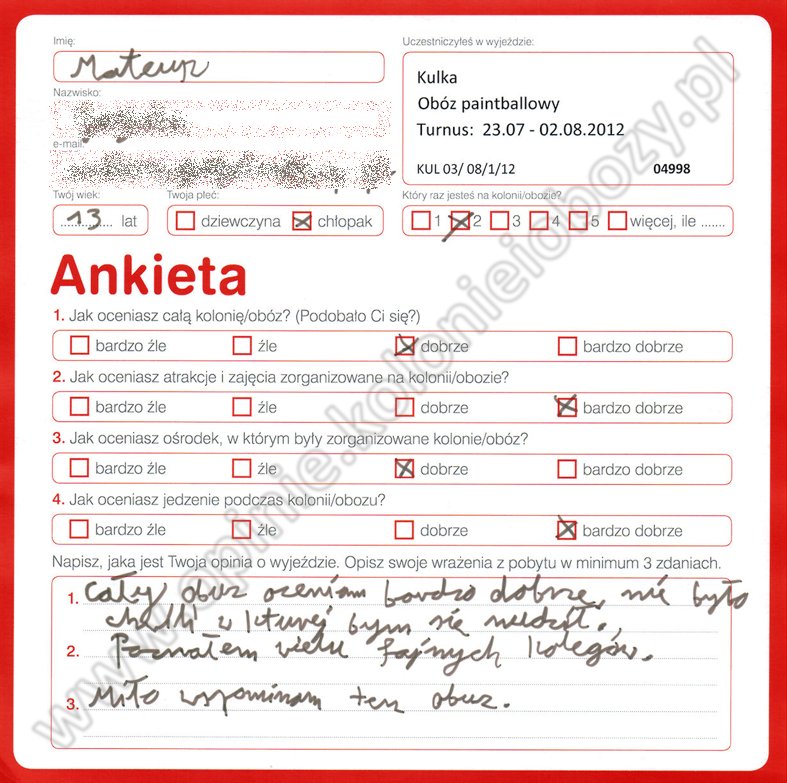 Imię:
Mateusz
Nazwisko:
e-mail:
Uczestniczyłeś w wyjeździe:
Kulka
Obóz paintballowy
Turnus: 23.07 - 02.08.2012
KUL 03/ 08/1/12 04998
Twój wiek:
13 lat
Twoja płeć:
dziewczyna chłopak
Który raz jesteś na kolonii/obozie?
1 2 3 4 5 więcej, ile .......
Ankieta
1. Jak oceniasz całą kolonię/obóz? (Podobało Ci się?)
bardzo źle źle dobrze bardzo dobrze
2. Jak oceniasz atrakcje i zajęcia zorganizowane na kolonii/obozie?
bardzo źle źle dobrze bardzo dobrze
3. Jak oceniasz ośrodek, w którym były zorganizowane kolonie/obóz?
bardzo źle źle dobrze bardzo dobrze
4. Jak oceniasz jedzenie podczas kolonii/obozu?
bardzo źle źle dobrze bardzo dobrze
Napisz, jaka jest Twoja opinia o wyjeździe. Opisz swoje wrażenia z pobytu w minimum 3 zdaniach.
1. Cały obuz oceniam bardzo dobrze, nie było
chwili w kturej bym się nudził.
2. Poznałem wielu fajnych kolegów.
3. Miło wspominam ten obuz.
www.opinie.kolonieiobozy.pl